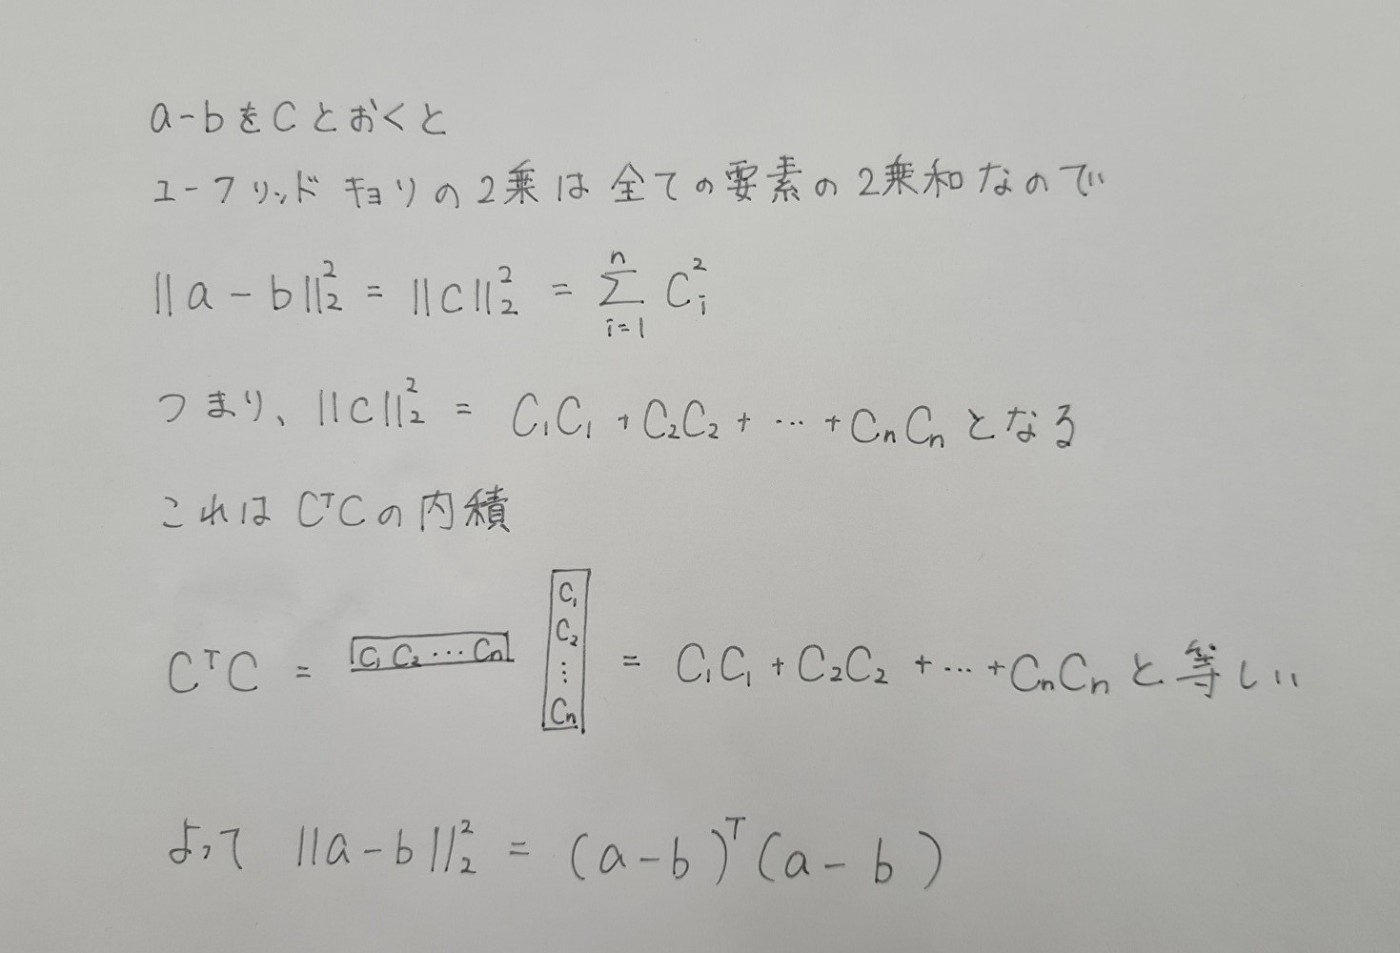 a-bをCとおくと
ユークリッドキョリの2乗は全ての要素の2乗和なので
||a-b||₂² = ||c||₂² = Σ_{i=1}^{n} C_i²
つまり、||c||₂² = C₁C₁ + C₂C₂ + … + CₙCₙ となる
これは CᵀCの内積
CᵀC = [C₁ C₂ … Cₙ] [C₁ C₂ ⋮ Cₙ] = C₁C₁ + C₂C₂ + … + CₙCₙ と等しい
よって ||a-b||₂² = (a-b)ᵀ(a-b)